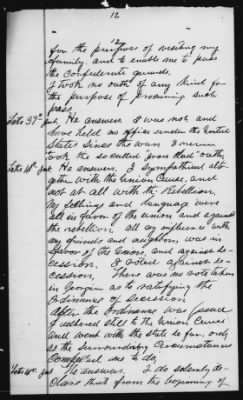 12
12
for the purpose of visiting my
family, and to enable me to pass
the Confederate guards.
I took no oath of any kind for
the purpose of procuring such
pass.
To the 37th Int. He answers I was not and
have held no office under the United
States since the war. I never
took the so called "iron clad" oath,
He answers, I sympathized al-
ways with the Union Cause, and
not at all with the Rebellion.
My feelings and language were
all in favor of the Union and against
the rebellion, all my influence with
my friends and neighbors was in
favor of the Union, and against se-
cession. I voted against se-
cession. There was no vote taken
in Georgia as to ratifying the
Ordinance of Secession
After the Ordinance was passed
I adhered still to the Union Cause
and went with the State so far, only
as the surrounding circumstances
Compelled me to do,
He answers. I do solemnly de-
clare that from the beginning of